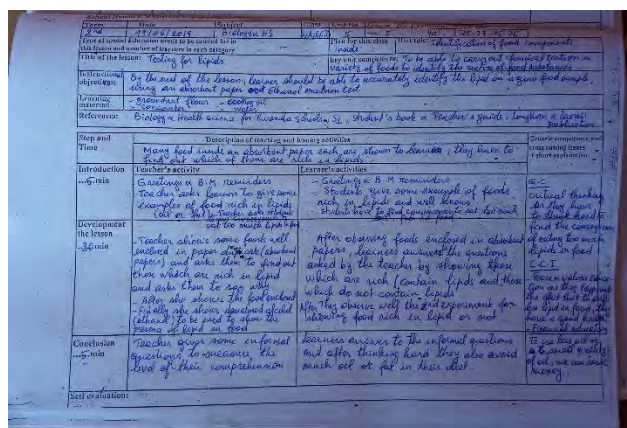 Term Date Subject Class Unit No Lesson No
2nd 19/06/2019 Biology & HS 5
Type of special Education needs to be catered for in this lesson and number of learners in each category
Plan for this class inside
Unit title: Identification of food components
Title of the lesson: Testing for lipids
Key unit competence: To be able to carry out chemical tests on a variety of foods to identify the nature of food substances
Instructional objective: By the end of the lesson, learner should be able to accurately identify the lipid in a given food sample, using an absorbent paper and Ethanol emulsion test
Learning materials - groundnut flour - cooking oil
References Biology & Health science for Rwanda Schools, S1, student's book & Teacher's guide, Longhorn
Step and Time
Description of teaching and learning activities
Many food inside an absorbent paper each are shown to learners, they have to find out which of those are rich in lipids
Generic competence and cross cutting issues + short explanation
Introduction
...5..min
Teacher's activity
Greetings & B.M reminders
- Teacher asks learner to give some examples of foods rich in lipids
eat too much lipids
Learner's activities
- Greetings & B M reminders
- Students give some example of foods
rich in lipids and well known
- Students have to find consequences
G.C
critical thinking
as they have
to think hard to
find the consequences
of eating too much
lipids in food
Development
the lesson
..30.min
- Teacher shows some foods well
enclosed in paper (absorbent
papers) and asks them to find out
those which are rich in lipid
and asks them to say why
After she shows the food enclosed
- Finally she shows
(ethanol) to be used to show the
presence of lipid in food
After observing foods enclosed in absorbent
papers, learners answers the questions
asked by the teacher by showing those
which are rich (contain lipids and those
which do not contain lipids
After They observe well the experiment for
showing food rich in lipid or not
C.C.I
have a good health
- Financial education
Conclusion
...5..min
Teacher gives some informal
questions to measure the
level of their comprehension
Learners answer to the informal questions
and after thinking hard they also avoid
much oil or fat in their diet.
To use less oil or
a small quantity
of oil, we can save
money.
Self evaluation: